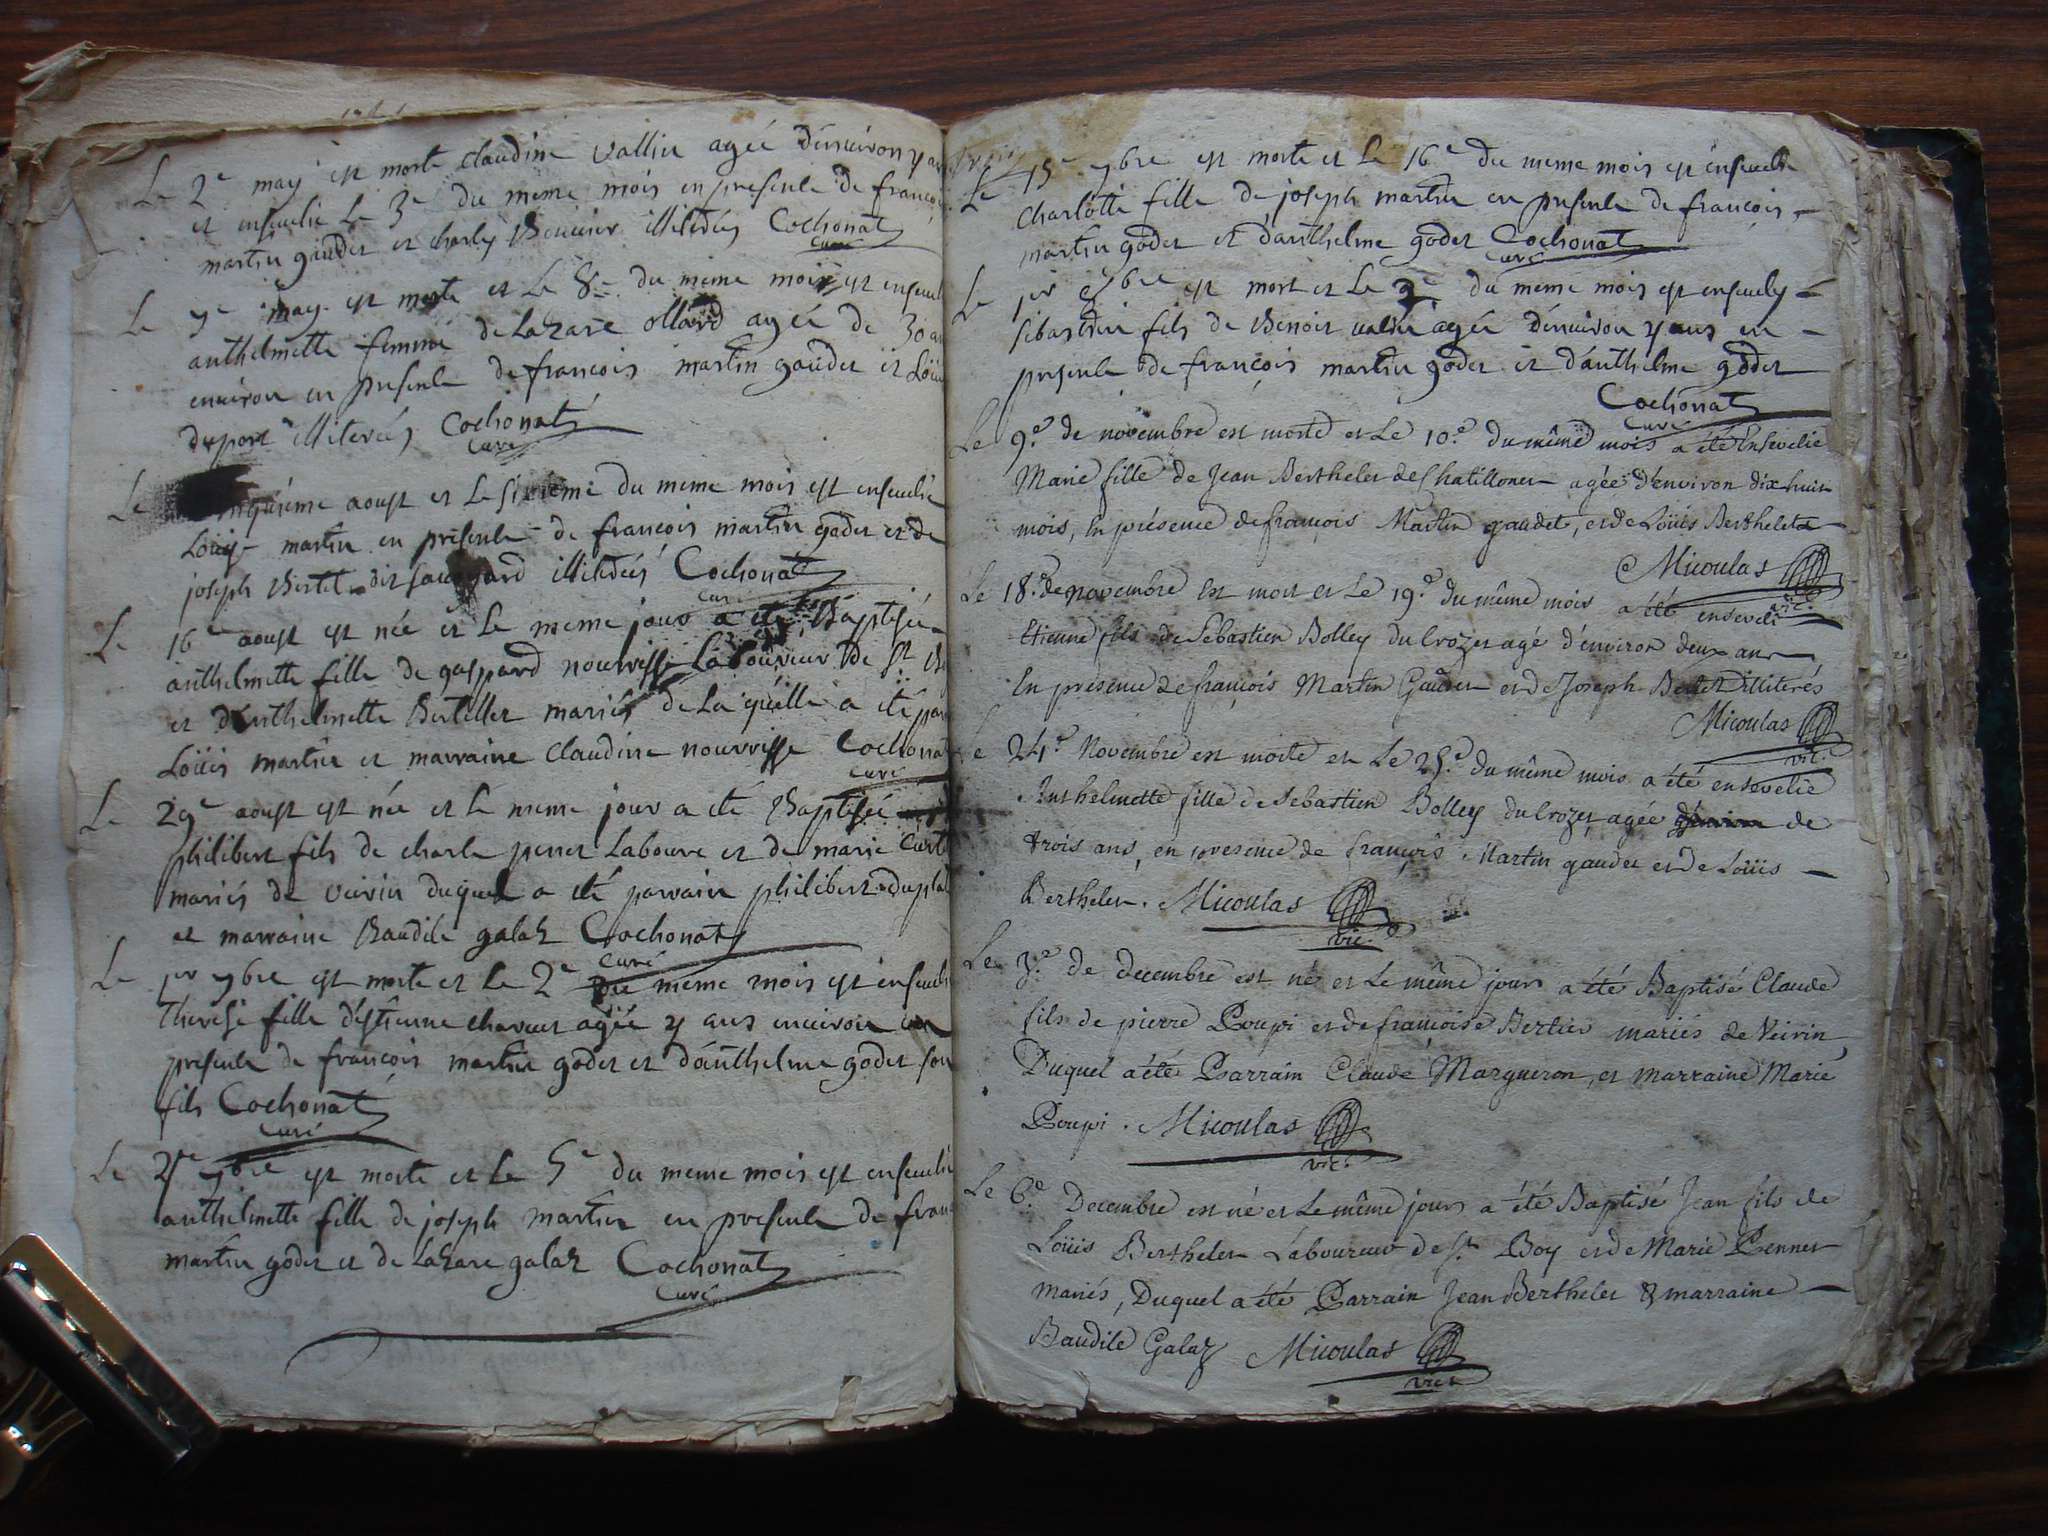 Le 2e may est morte claudine vallin agée dénviron
et ensevelie Le 3e du meme mois en presence de françois
martin gaudet et charle illiterés Cochonat
curé
Le 7e may est morte et Le 8e du meme mois est ensevel
anthelmette femme de Lazare ollard agée de 30 an
environ en presence de françois martin gaudet et Loüis
duport illiterés Cochonat
curé
Le inquiéme aoust et Le sixieme du meme mois est ensevelie
Loüis martin en presence de françois martin godet et de
joseph dit illiterés Cochonat
curé
Le 16e aoust est née et Le meme jour a eté Baptisée
anthelmette fille de gaspard nourrisse Laboureur de St
et d'anthelmette Bertellet mariés de La quélle a eté par
Loüis martin et marraine claudine nourrisse Cochonat
curé
Le 29e aoust est née et Le meme jour a eté Baptisée
philibert fils de charle perret Laboure et de marie
mariés de veirin duquel a eté parrain philibert
et marraine Baudile galaz Cochonat
curé
Le per 7bre est morte et Le 2e du meme mois est ensevelie
therese fille d'estienne agée 7 ans environ en
presence de françois martin godet et d'anthelme godet son
fils Cochonat
curé
Le 7bre est morte et Le 5e du meme mois est ensevelie
anthelmette fille de joseph martin en presence de fran
martin godet et de Lazare galaz Cochonat
curé
Le 15e 7bre est morte et Le 16e du meme mois est ensevelie
charlotte fille de joseph martin en presence de françois
martin godet et d'anthelme godet Cochonat
curé
Le per est mort et Le du meme mois est ensevely
sebastien fils de Benoit vallin agée dénviron 7 ans en
presence de françois martin godet et d'anthelme godet
Cochonat
curé
Le 9.e de novembre est morte et Le 10.e du même mois a été Ensevelie
Marie fille de Jean Berthelet de Chatillonet agée d'environ dix huit
mois, En présence de françois Martin gaudet, et de Loüis Berthelet
Micoulas
vic.
Le 18.e de novembre Est mort et Le 19.e du même mois a été enseveli
Etienne fils de Sebastien Bolley du Crozet agé d'environ deux ans
En présence de françois Martin Gaudet et de Joseph illiterés
Micoulas
vic.
Le 24.e Novembre est morte et Le 25.e du même mois a été ensevelie
Anthelmette fille de Sebastien Bolley du Crozet agée de
trois ans, en presence de françois Martin gaudet et de Loüis
Berthelet. Micoulas
vic.
Le 3.e de decembre est né et Le même jours a été Baptisé Claude
fils de pierre Poupi et de françoise Bertier mariés de Veirin
Duquel a été Parrain Claude Margueron, et marraine Marie
Poupi. Micoulas
vic.
Le 6.e Decembre est né et Le même jours a été Baptisé Jean fils de
Loüis Berthelet Laboureur de St. Boy et de Marie Pernet
mariés, Duquel a été Parrain Jean Berthelet & marraine
Baudile Galaz Micoulas
vic.